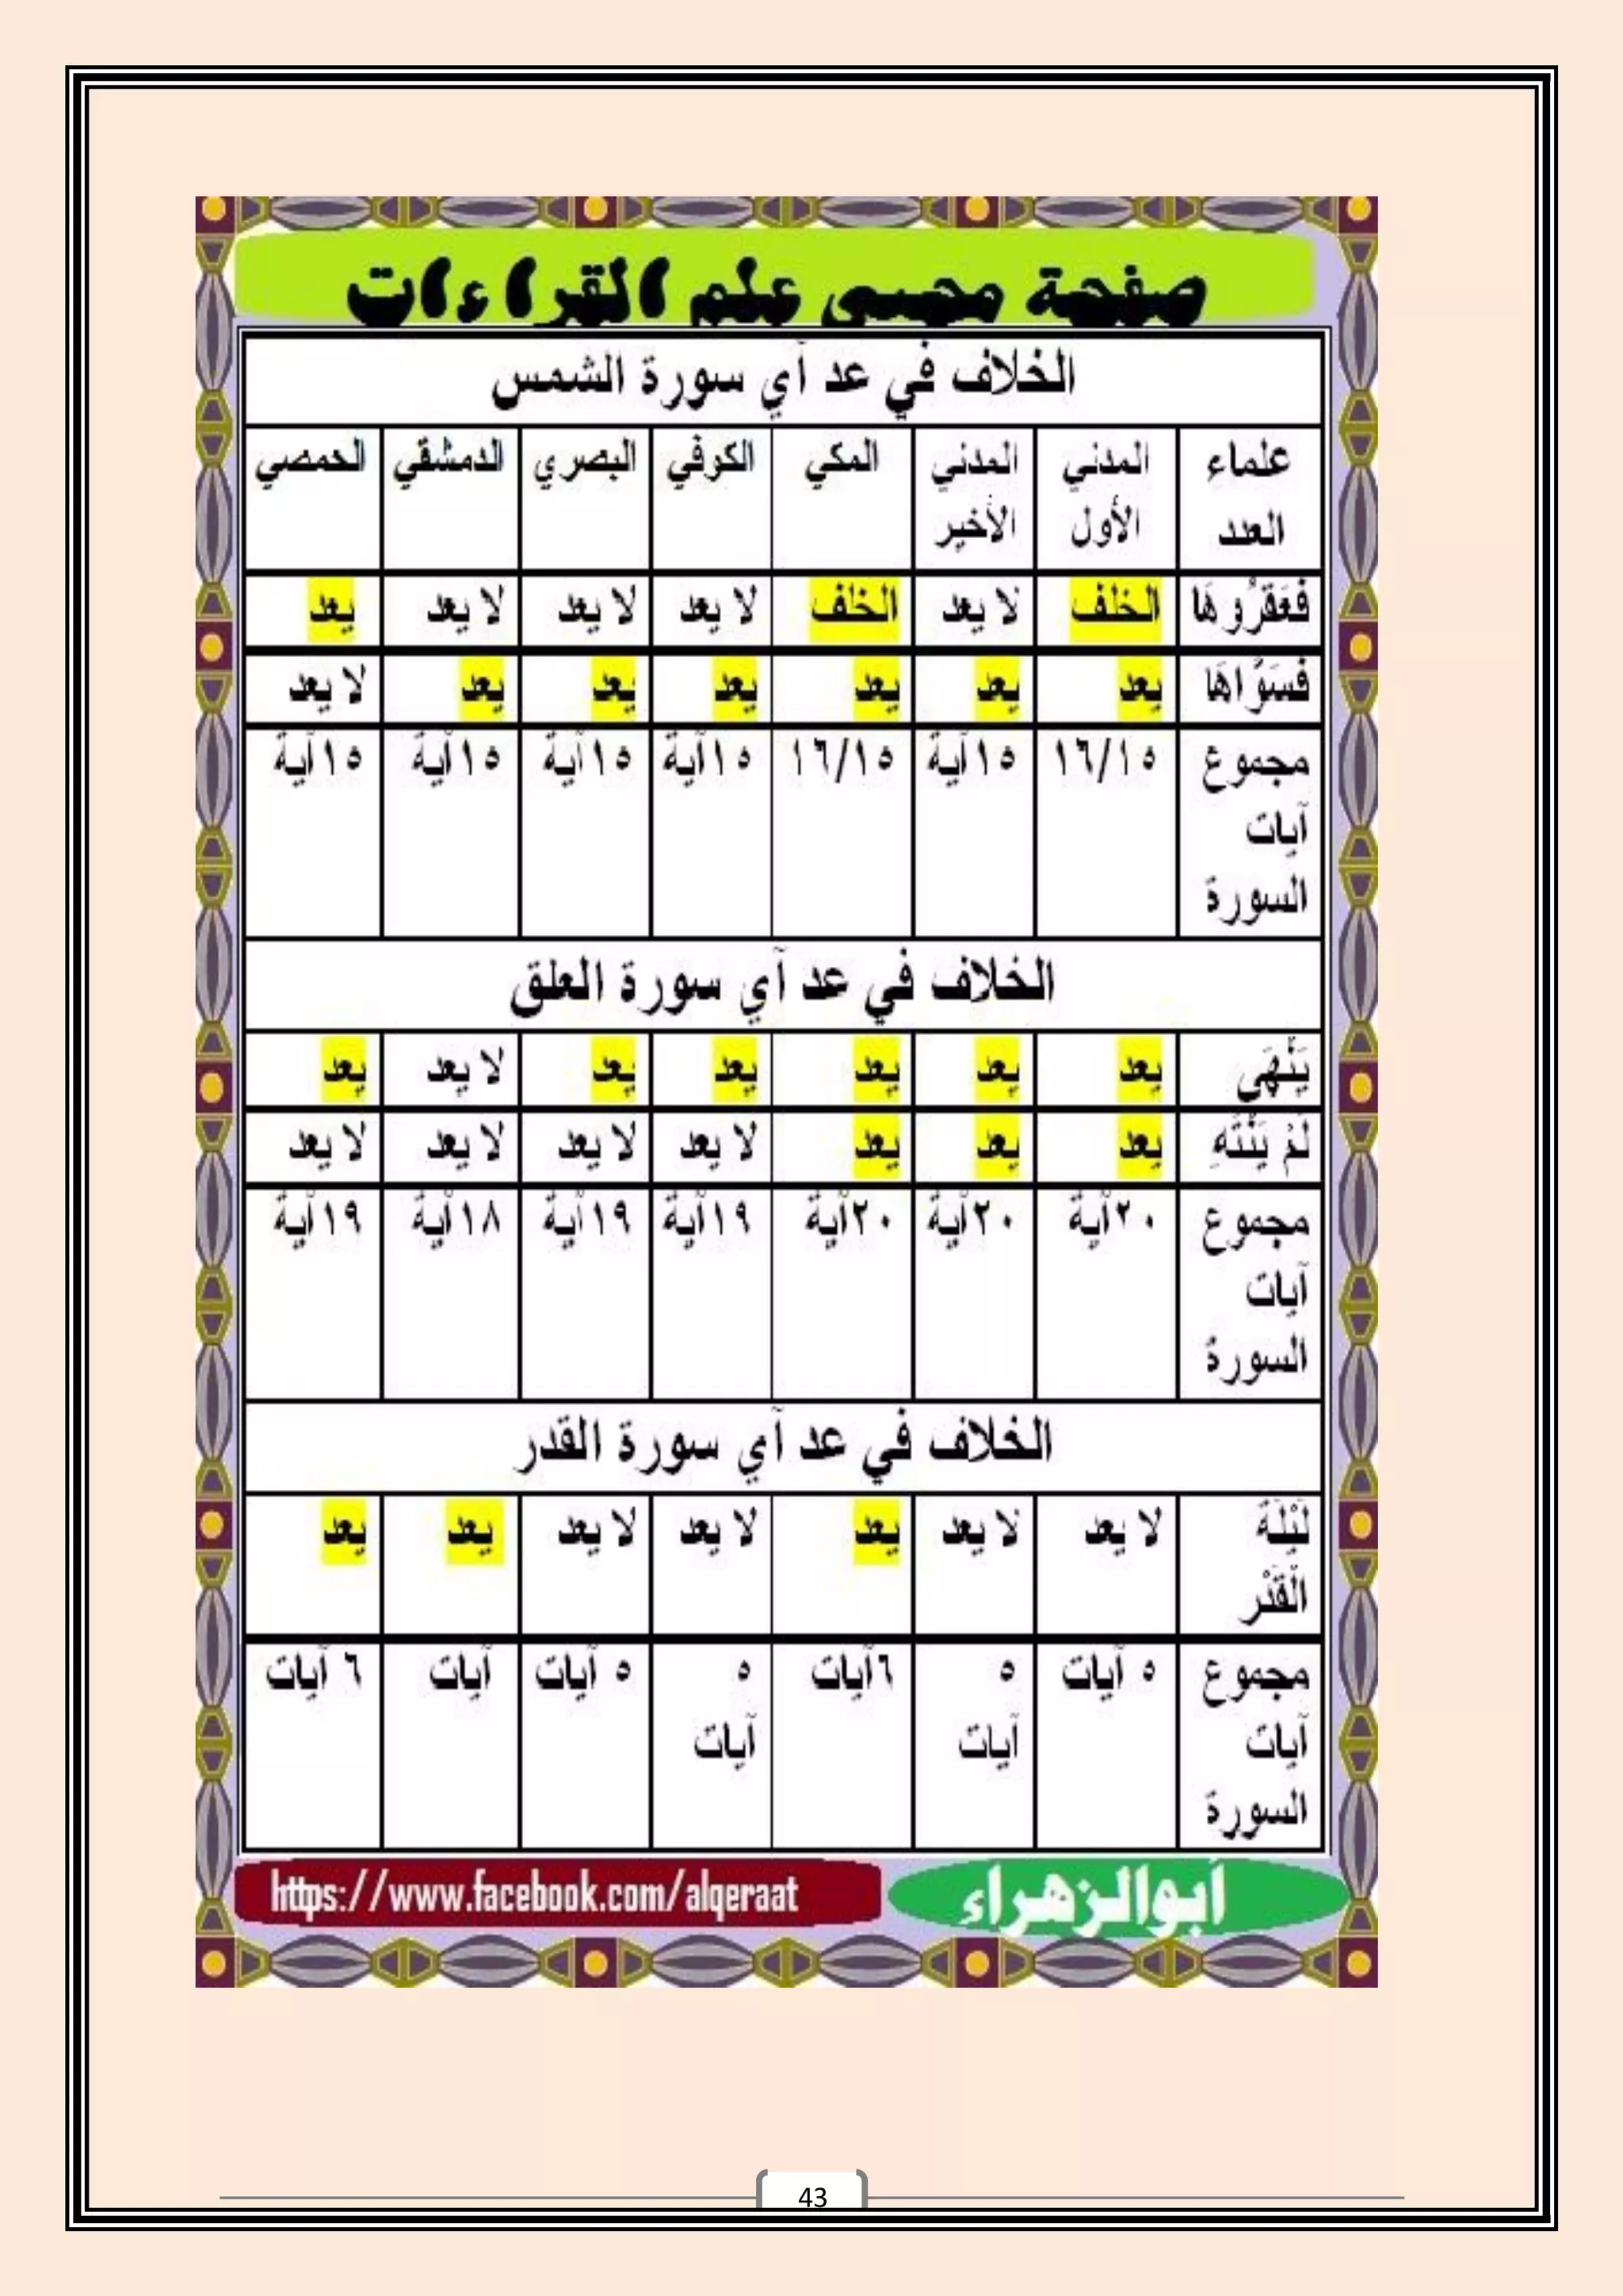 صفحة محبي علم القراءات
الخلاف في عد آي سورة الشمس
علماء العدد | المدني الأول | المدني الأخير | المكي | الكوفي | البصري | الدمشقي | الحمصي
فَعَقَرُوهَا | الخلف | لا يعد | الخلف | لا يعد | لا يعد | لا يعد | يعد
فَسَوَّاهَا | يعد | يعد | يعد | يعد | يعد | يعد | لا يعد
مجموع آيات السورة | ١٦/١٥ | ١٥آية | ١٦/١٥ | ١٥آية | ١٥آية | ١٥آية | ١٥آية
الخلاف في عد آي سورة العلق
يَنْهَى | يعد | يعد | يعد | يعد | يعد | لا يعد | يعد
لَمْ يَنْتَهِ | يعد | يعد | يعد | لا يعد | لا يعد | لا يعد | لا يعد
مجموع آيات السورة | ٢٠آية | ٢٠آية | ٢٠آية | ١٩آية | ١٩آية | ١٨آية | ١٩آية
الخلاف في عد آي سورة القدر
لَيْلَةُ الْقَدْر | لا يعد | لا يعد | يعد | لا يعد | لا يعد | يعد | يعد
مجموع آيات السورة | ٥ آيات | ٥ آيات | ٦آيات | ٥ آيات | ٥ آيات | آيات | ٦ آيات
أبوالزهراء
https://www.facebook.com/alqeraat
43